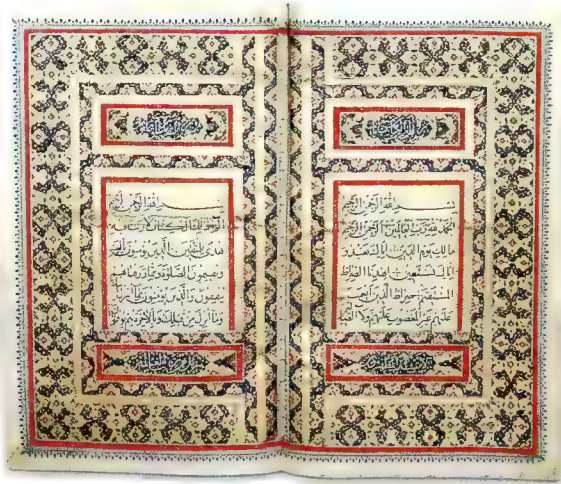 بسم الله الرحمن الرحيم
الحمد لله رب العالمين الرحمن الرحيم
مالك يوم الدين اياك نعبد و
اياك نستعين اهدنا الصراط
المستقيم صراط الذين انعمت
عليهم غير المغضوب عليهم ولا الضالين
بسم الله الرحمن الرحيم
الم ذلك الكتاب لا ريب فيه
هدى للمتقين الذين يؤمنون بالغيب
ويقيمون الصلوة ومما رزقناهم
ينفقون والذين يؤمنون بما انزل
وما انزل من قبلك وبالاخرة هم يوقنون